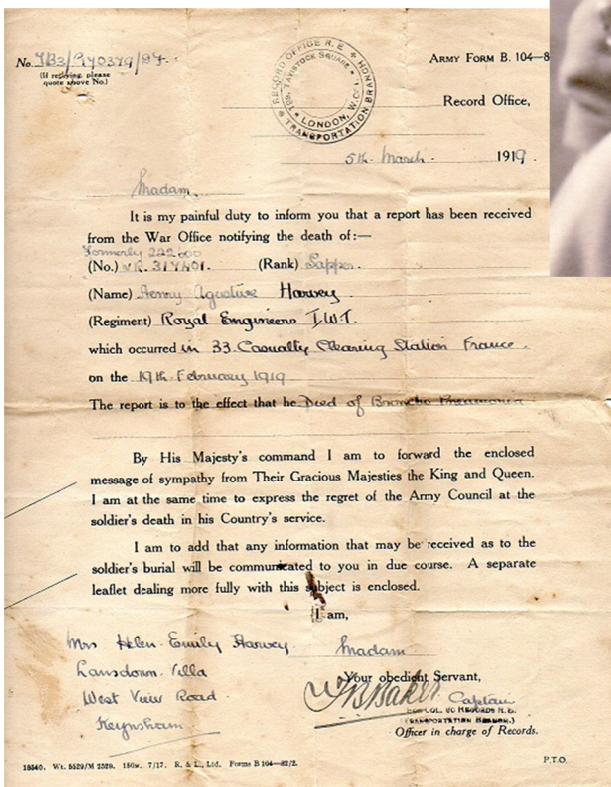 No. TB3/R40379/84. ARMY FORM B. 104—8
(If replying, please
quote above No.)
RECORD OFFICE R.E. TRANSPORTATION BRANCH
TAVISTOCK SQUARE LONDON, W.C.1
Record Office,
5th March. 1919.
Madam.
It is my painful duty to inform you that a report has been received
from the War Office notifying the death of:—
Formerly 222600
(No.) (Rank) Sapper
(Name) Henry Harvey
(Regiment) Royal Engineers I.W.T.
which occurred in 33. Casualty Clearing Station France.
on the 19th February 1919
The report is to the effect that he Died of Broncho Pneumonia
By His Majesty's command I am to forward the enclosed
message of sympathy from Their Gracious Majesties the King and Queen.
I am at the same time to express the regret of the Army Council at the
soldier's death in his Country's service.
I am to add that any information that may be received as to the
soldier's burial will be communicated to you in due course. A separate
leaflet dealing more fully with this subject is enclosed.
I am,
Mrs Helen Emily Harvey Madam
Lansdown Villa Your obedient Servant,
West View Road JBBaker Captain
FOR COL. I/C RECORDS R.E.
Keynsham (TRANSPORTATION BRANCH.)
Officer in charge of Records.
18540. Wt. 5529/M 2529. 150m. 7/17. R. & L., Ltd. Forms B 104—82/2. P.T.O.